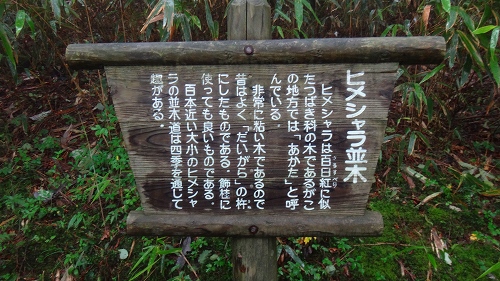 ヒメシャラ並木
ヒメシャラは百日紅に似
たつばき科の木であるがこ
の地方では「あかた」と呼
んでいる。
非常に粘い木であるので
昔はよく「だいがら」の杵
にしたものである。飾柱に
使っても良いものである。
百本近い大小のヒメシャ
ラの並木道は四季を通じて
趣がある。